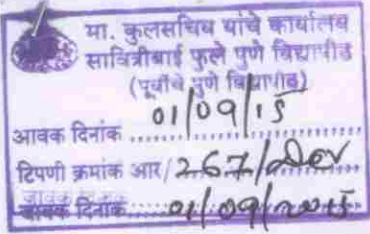 मा. कुलसचिव यांचे कार्यालय
सावित्रीबाई फुले पुणे विद्यापीठ
(पूर्वीचे पुणे विद्यापीठ)
आवक दिनांक 01/09/15
टिपणी क्रमांक आर/267/
जावक दिनांक 01/09/2015